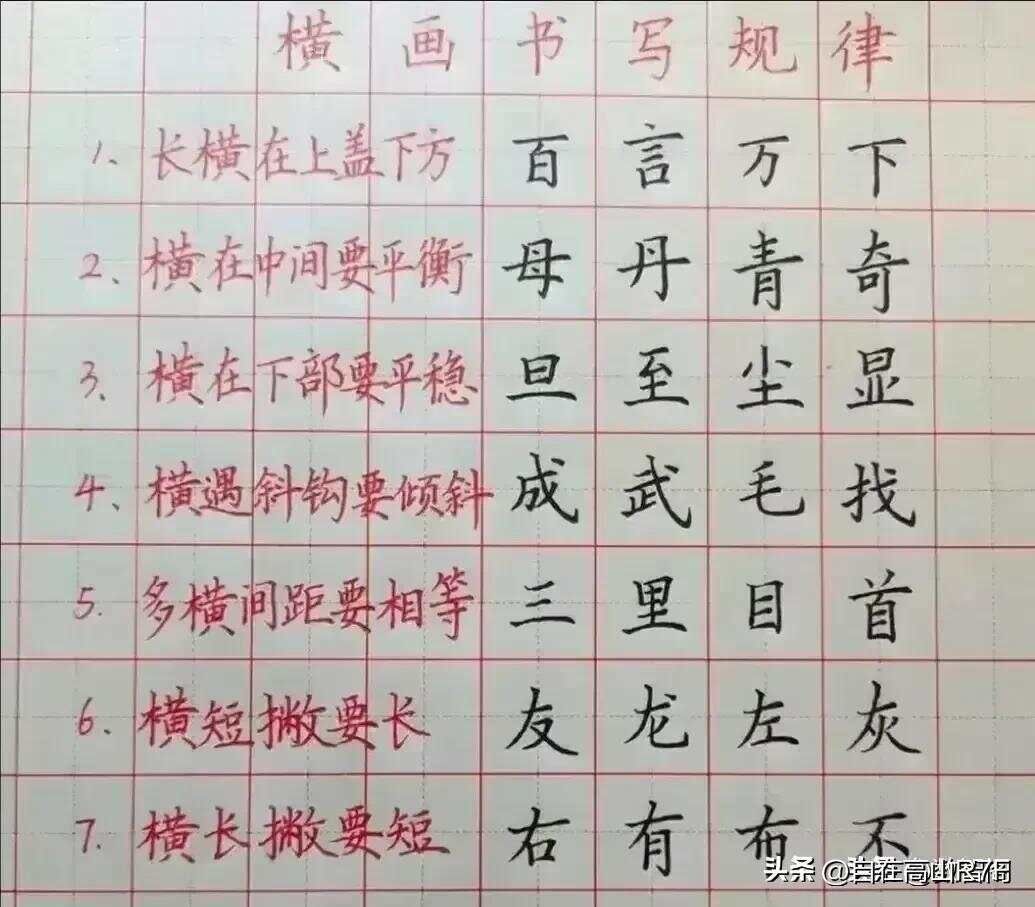 横画书写规律
1、长横在上盖下方 百言万下
2、横在中间要平衡 母丹青奇
3、横在下部要平稳 旦至尘显
4、横遇斜钩要倾斜 成武毛找
5、多横间距要相等 三里目首
6、横短撇要长 友龙左灰
7、横长撇要短 右有布不
头条